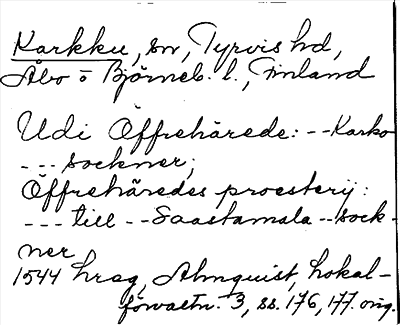 Karkku, sn, Tyrvis hd,
Åbo o Björneb. l., Finland
Udi Öffrehärede: -- Karko
--- sockner;
Öffrehäredes proesterij:
--- till -- Saastamala -- sock-
ner
1544 hrag, Almquist, Lokal-
förvaltn. 3, ss. 176, 177. orig.